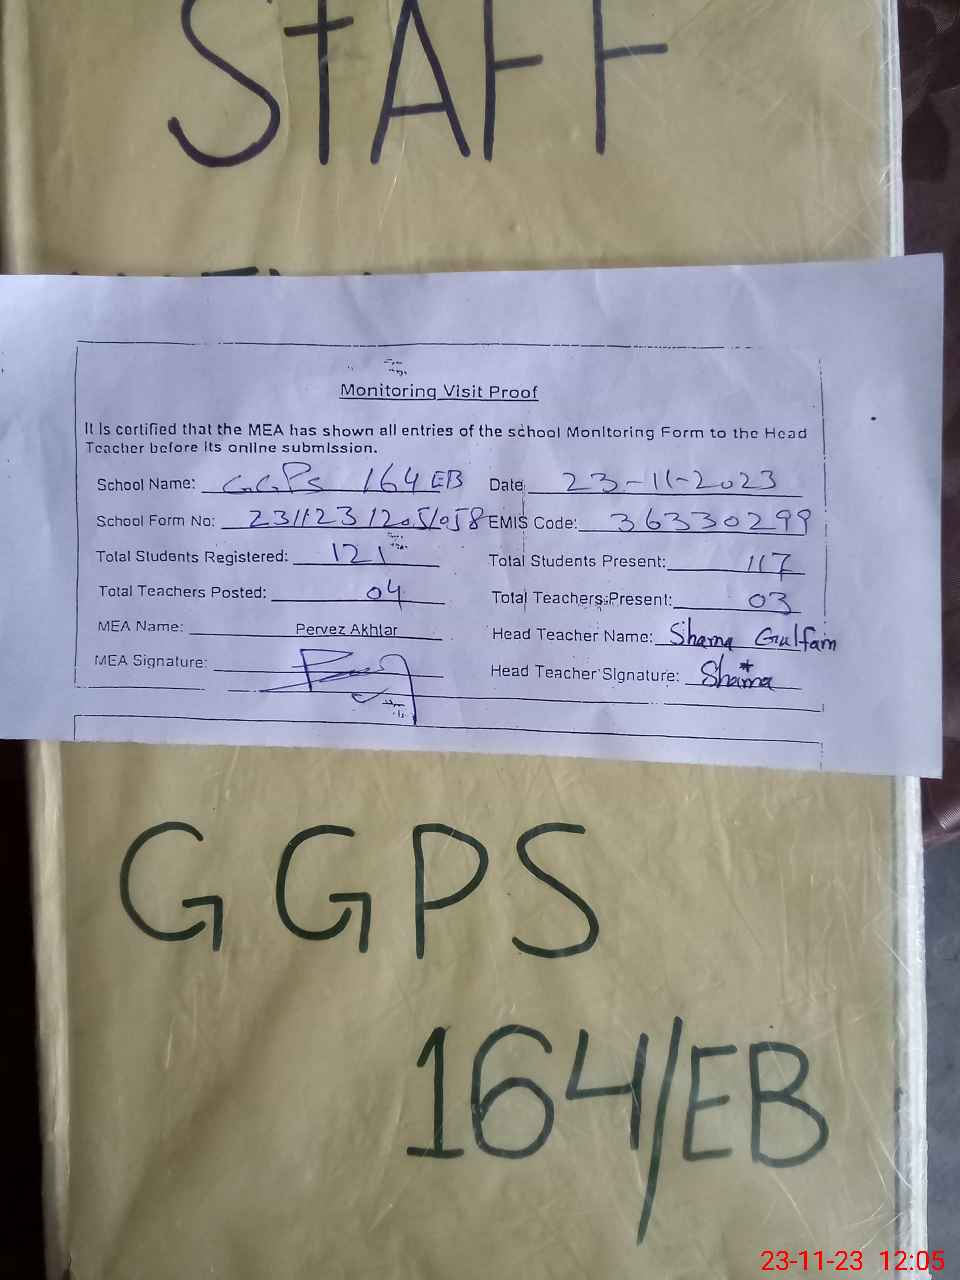 StAFF
Monitoring Visit Proof
It is certified that the MEA has shown all entries of the school Monitoring Form to the Head
Teacher before its online submission.
School Name: GGPS 164 EB Date: 23-11-2023
School Form No: 231123 12051058 EMIS Code: 36330299
Total Students Registered: 121 Total Students Present: 117
Total Teachers Posted: 04 Total Teachers Present: 03
MEA Name: Pervez Akhtar Head Teacher Name: Shama Gulfam
MEA Signature: Head Teacher Signature: Shama
GGPS
164/EB
23-11-23 12:05